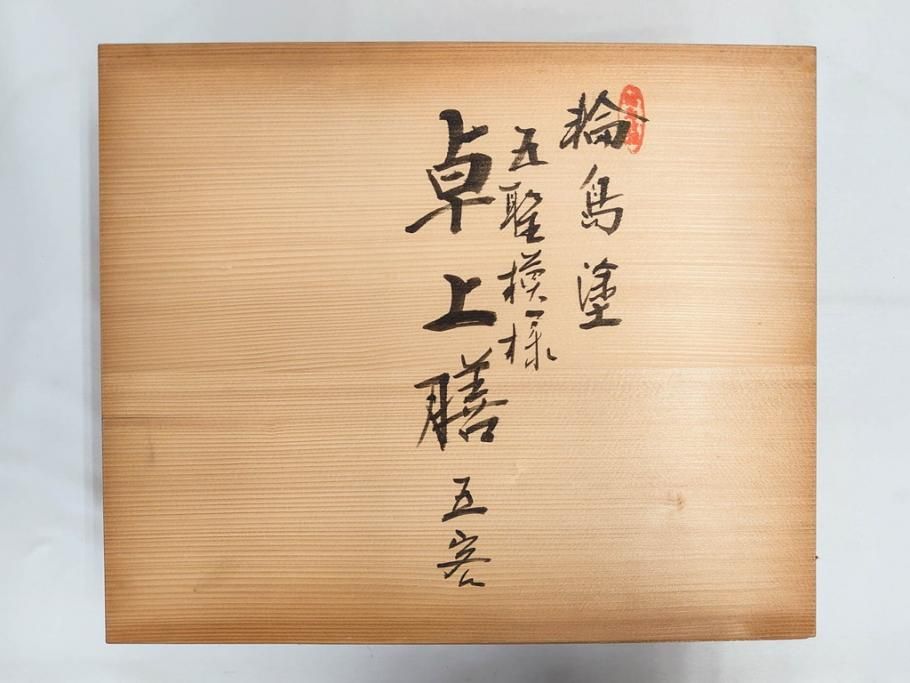 輪島塗
五聖模様
卓上膳 五客